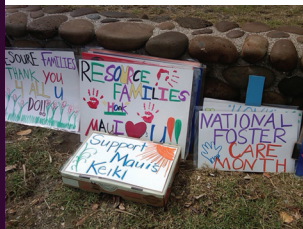 SOURE FAMILIES
THANK YOU
4 ALL
U
DO!!
RESOURCE
FAMILIES
Honk
MAUI U!!
Support
Maui's
Keiki
NATIONAL
FOSTER
CARE
MONTH